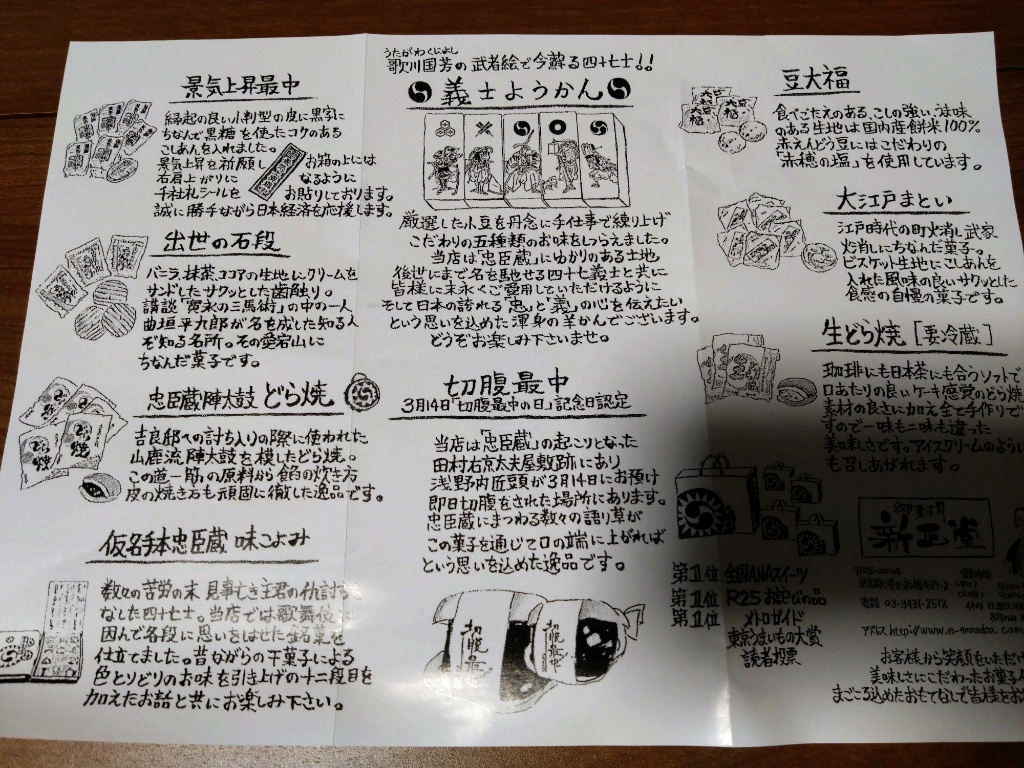 景気上昇最中
縁起の良い小判型の皮に黒字に
ちなんで黒糖を使ったコクのある
こしあんを入れました。
景気上昇を祈願し
右肩上がりに
千社札シールを
お箱の上には
なるように
お貼りしております。
誠に勝手ながら日本経済を応援します。
出世の石段
バニラ、抹茶、ココアの生地にクリームを
サンドしたサクッとした歯触り。
講談「寛永の三馬術」の中の一人
曲垣平九郎が名を成した知る人
ぞ知る名所。その愛宕山に
ちなんだ菓子です。
忠臣蔵陣太鼓どら焼
吉良邸への討ち入りの際に使われた
山鹿流陣太鼓を模したどら焼。
この道一筋の原料から餡の炊き方
皮の焼き方も頑固に徹した逸品です。
仮名手本忠臣蔵 味こよみ
数々の苦労の末 見事亡き主君の仇討を
なした四十七士。当店では歌舞伎に
因んで名段に思いをはせた銘菓を
仕立てました。昔ながらの干菓子による
色とりどりのお味を引き上げの十二段目を
加えたお話と共にお楽しみ下さい。
うたがわくによし
歌川国芳の武者絵で今蘇る四十七士!!
義士ようかん
厳選した小豆を丹念に手仕事で練り上げ
こだわりの五種類のお味をしつらえました。
当店は「忠臣蔵」にゆかりのある土地。
後世にまで名を馳せる四十七義士と共に
皆様に末永くご愛用していただけるように
そして日本の誇れる「忠」と「義」の心を伝えたい
という思いを込めた渾身の羊かんでございます。
どうぞお楽しみ下さいませ。
切腹最中
3月14日「切腹最中の日」記念日認定
当店は「忠臣蔵」の起こりとなった
田村右京太夫屋敷跡にあり
浅野内匠頭が3月14日にお預け
即日切腹をされた場所にあります。
忠臣蔵にまつわる数々の語り草が
この菓子を通じて口の端に上がれば
という思いを込めた逸品です。
切腹最中
切腹最中
豆大福
食べごたえのある、こしの強い、うま味
のある生地は国内産餅米100%
赤えんどう豆にはこだわりの
「赤穂の塩」を使用しています。
大江戸まとい
江戸時代の町火消し武家
火消しにちなんだ菓子。
ビスケット生地にこしあんを
入れた風味の良いサクッとした
食感の自慢の菓子です。
生どら焼[要冷蔵]
珈琲にも日本茶にも合うソフトで
口あたりの良いケーキ感覚のどら焼
素材の良さに加え全て手作りで
すので一味も二味も違った
美味しさです。アイスクリームのように
も召しあがれます。
第1位 全国ANAスイーツ
第1位 R25お詫びの品
第1位 メトロガイド
東京うまいもの大賞
読者投票
御菓子司
新正堂
電話 03-3431-2512
アドレス http://www.e-monaka.com
お客様から笑顔をいただけ
美味しさにこだわったお菓子
まごころ込めたおもてなしで皆様をお